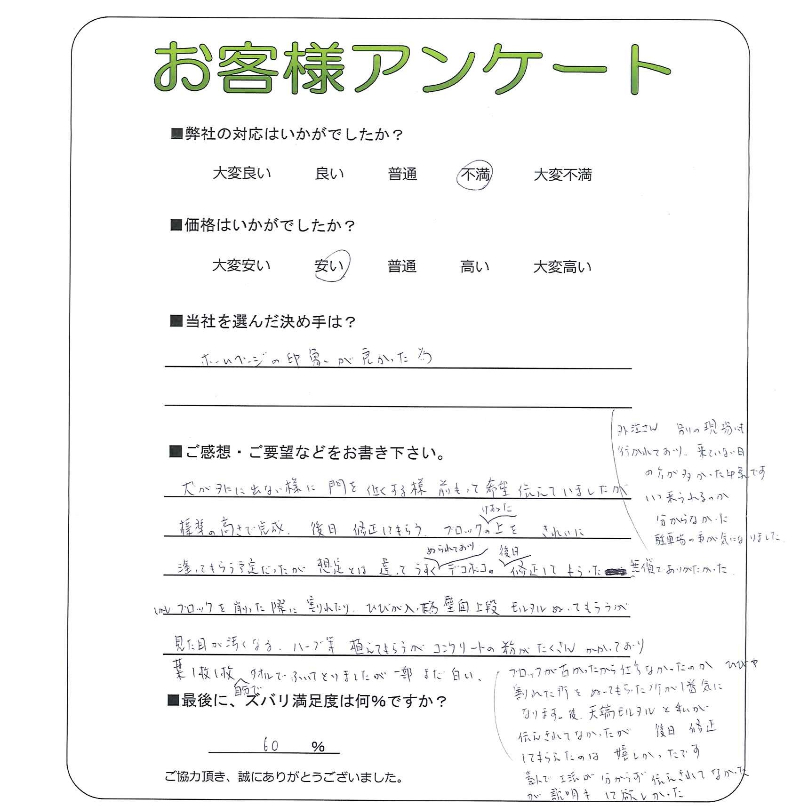 お客様アンケート
■弊社の対応はいかがでしたか？
大変良い 良い 普通 不満 大変不満
■価格はいかがでしたか？
大変安い 安い 普通 高い 大変高い
■当社を選んだ決め手は？
ホームページの印象が良かった為
■ご感想・ご要望などをお書き下さい。
犬が外に出ない様に 門を 低くする様 前もって希望 伝えていましたが
標準の高さで完成、後日 修正してもらう、ブロックの上を きれいに
けずった
塗ってもらう予定だったが 想定とは違って うすく デコボコの 修正してもらった 無償でありがたかった
ぬられており 後日
ブロックを削った際に 割れたり、ひびが入い 壁面上段 モルタルぬってもらうが
見た目が汚くなる、ハーブ等 植えてもらうが コンクリートの粉がたくさん かかっており
葉1枚1枚 タオルで ふいてとりましたが 一部 まだ白い、
自分で
外注さん 別の現場に
行かれており、来ていない日
の方が多かった印象です
いつ来られるのか
分からなかった
駐車場の車が気になりました
ブロックが古かったから仕方なかったのか ひびや
割れた所を ぬってもらった所が1番気に
なります。後、天端モルタルと 私が
伝えきれてなかったが 後日 修正
してもらえたのは 嬉しかったです
工法が 分からず 伝えきれてなかった
が 説明をして欲しかった
■最後に、ズバリ満足度は何%ですか？
60 %
ご協力頂き、誠にありがとうございました。